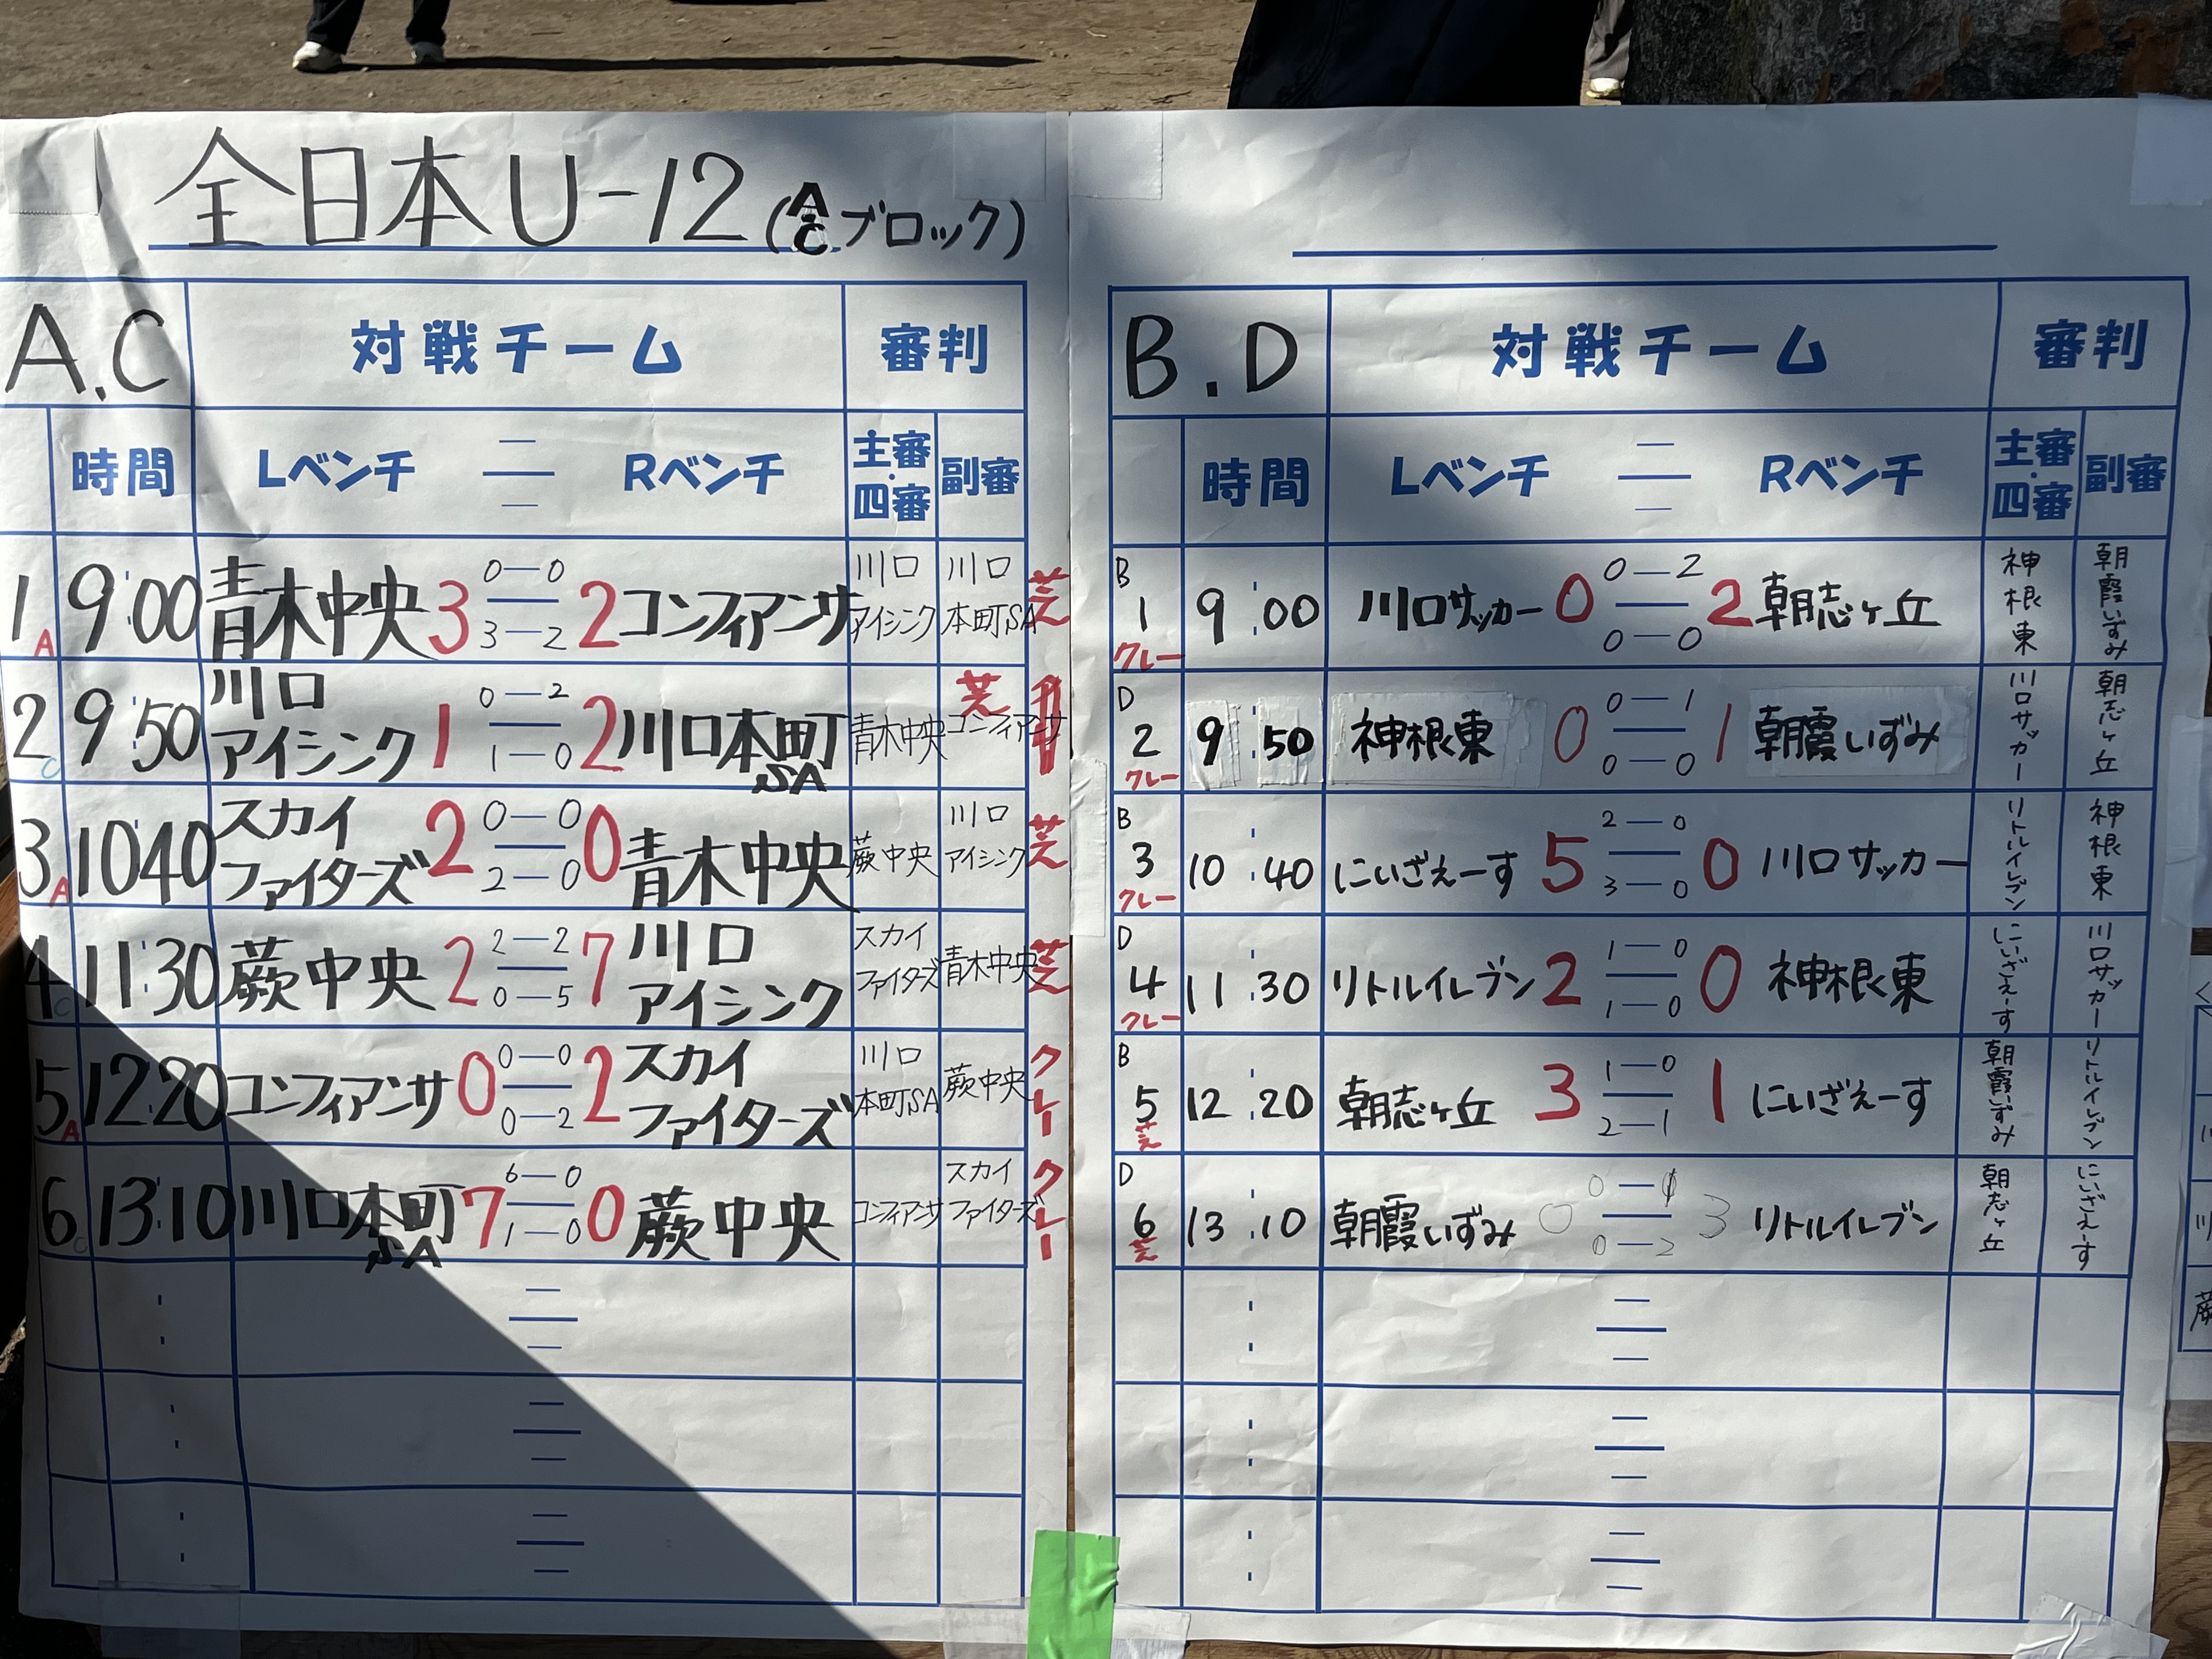 全日本U-12(A Cブロック)
A.C 対戦チーム 審判
時間 Lベンチ Rベンチ 主審・四審 副審
1 A 9:00 青木中央 3 0-0 3-2 2 コンフィアンサ 川口アイシンク 川口本町SA 芝
2 C 9:50 川口アイシンク 1 0-2 1-0 2 川口本町SA 青木中央 コンフィアンサ 芝
3 A 10 40 スカイファイターズ 2 0-0 2-0 0 青木中央 蕨中央 川口アイシンク 芝
4 C 11:30 蕨中央 2 2-2 0-5 7 川口アイシンク スカイファイターズ 青木中央 芝
5 A 12:20 コンフィアンサ 0 0-0 0-2 2 スカイファイターズ 川口本町SA 蕨中央 クレー
6 C 13:10 川口本町SA 7 6-0 1-0 0 蕨中央 コンフィアンサ スカイファイターズ クレー
B.D 対戦チーム 審判
時間 Lベンチ Rベンチ 主審・四審 副審
B 1 クレー 9:00 川口サッカー 0 0-2 0-0 2 朝志ヶ丘 神根東 朝霞いずみ
D 2 クレー 9:50 神根東 0 0-1 0-0 1 朝霞いずみ 川口サッカー 朝志ヶ丘
B 3 クレー 10:40 にいざえーす 5 2-0 3-0 0 川口サッカー リトルイレブン 神根東
D 4 クレー 11:30 リトルイレブン 2 1-0 1-0 0 神根東 にいざえーす 川口サッカー
B 5 芝 12:20 朝志ヶ丘 3 1-0 2-1 1 にいざえーす 朝霞いずみ リトルイレブン
D 6 芝 13:10 朝霞いずみ 0 0- 0-2 3 リトルイレブン 朝志ヶ丘 にいざえーす